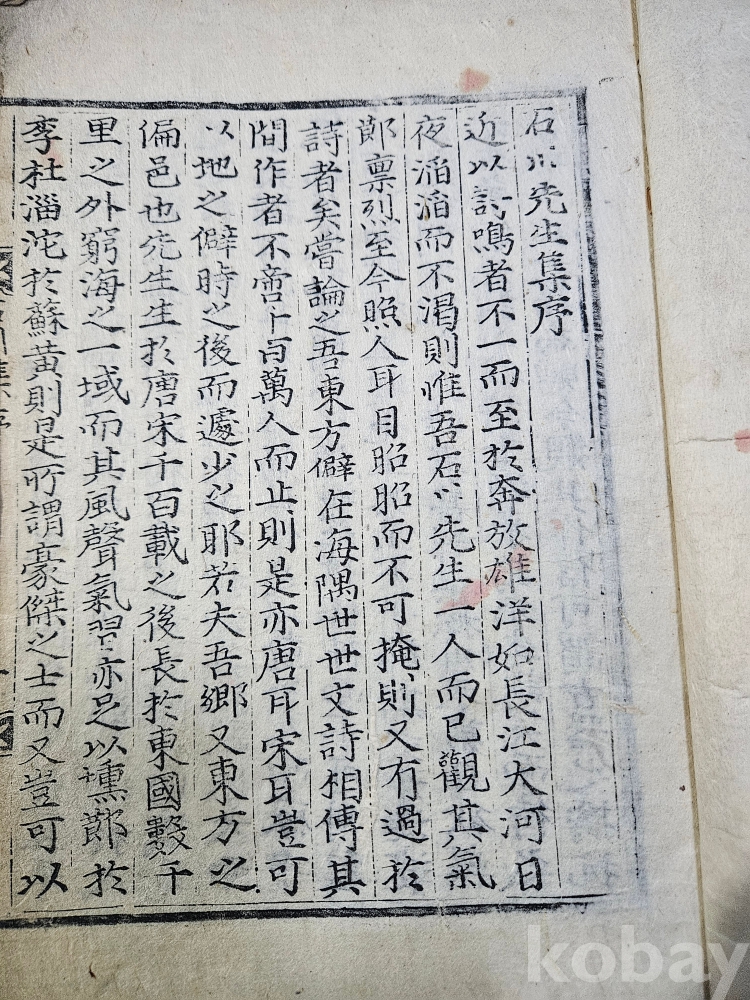 石川先生集序
近以詩鳴者不一而至於奔放雄洋如長江大河日
夜滔滔而不渴則惟吾石川先生一人而已觀其氣
節凜烈至今照人耳目昭昭而不可掩則又有過於
詩者矣嘗論之吾東方僻在海隅世世文詩相傳其
間作者不啻卜百萬人而止則是亦唐耳宋耳豈可
以地之僻時之後而遽少之耶若夫吾鄉又東方之
偏邑也先生生於唐宋千百載之後長於東國數千
里之外窮海之一域而其風聲氣習亦足以熏節於
李杜淄沱於蘇黃則是所謂豪傑之士而又豈可以
kobay